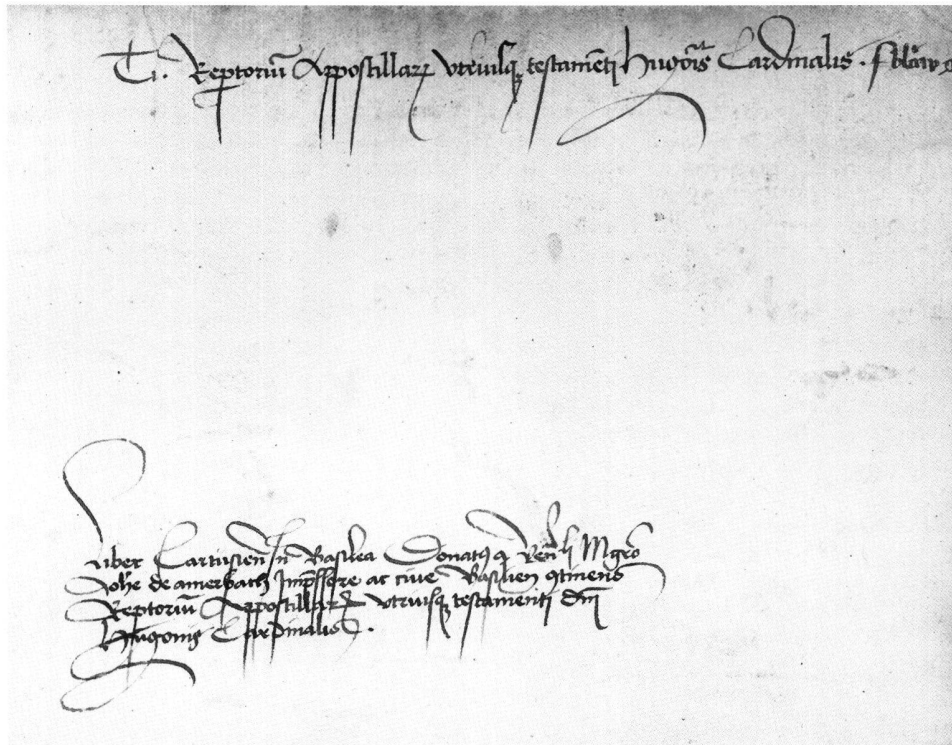 Ti. Reptoriū Appostillarꝝ vtriusqꝫ testamēti Hugōis Cardinalis.
Liber Cartusień In Basilea Donatꝰ a Mgrō
Johē de amerbach Impssore ac ciue Basilień ꝯtinens
Reptoriū Appostillarꝝ vtriusqꝫ testamenti dn̄i
Hugonis Cardinalis.